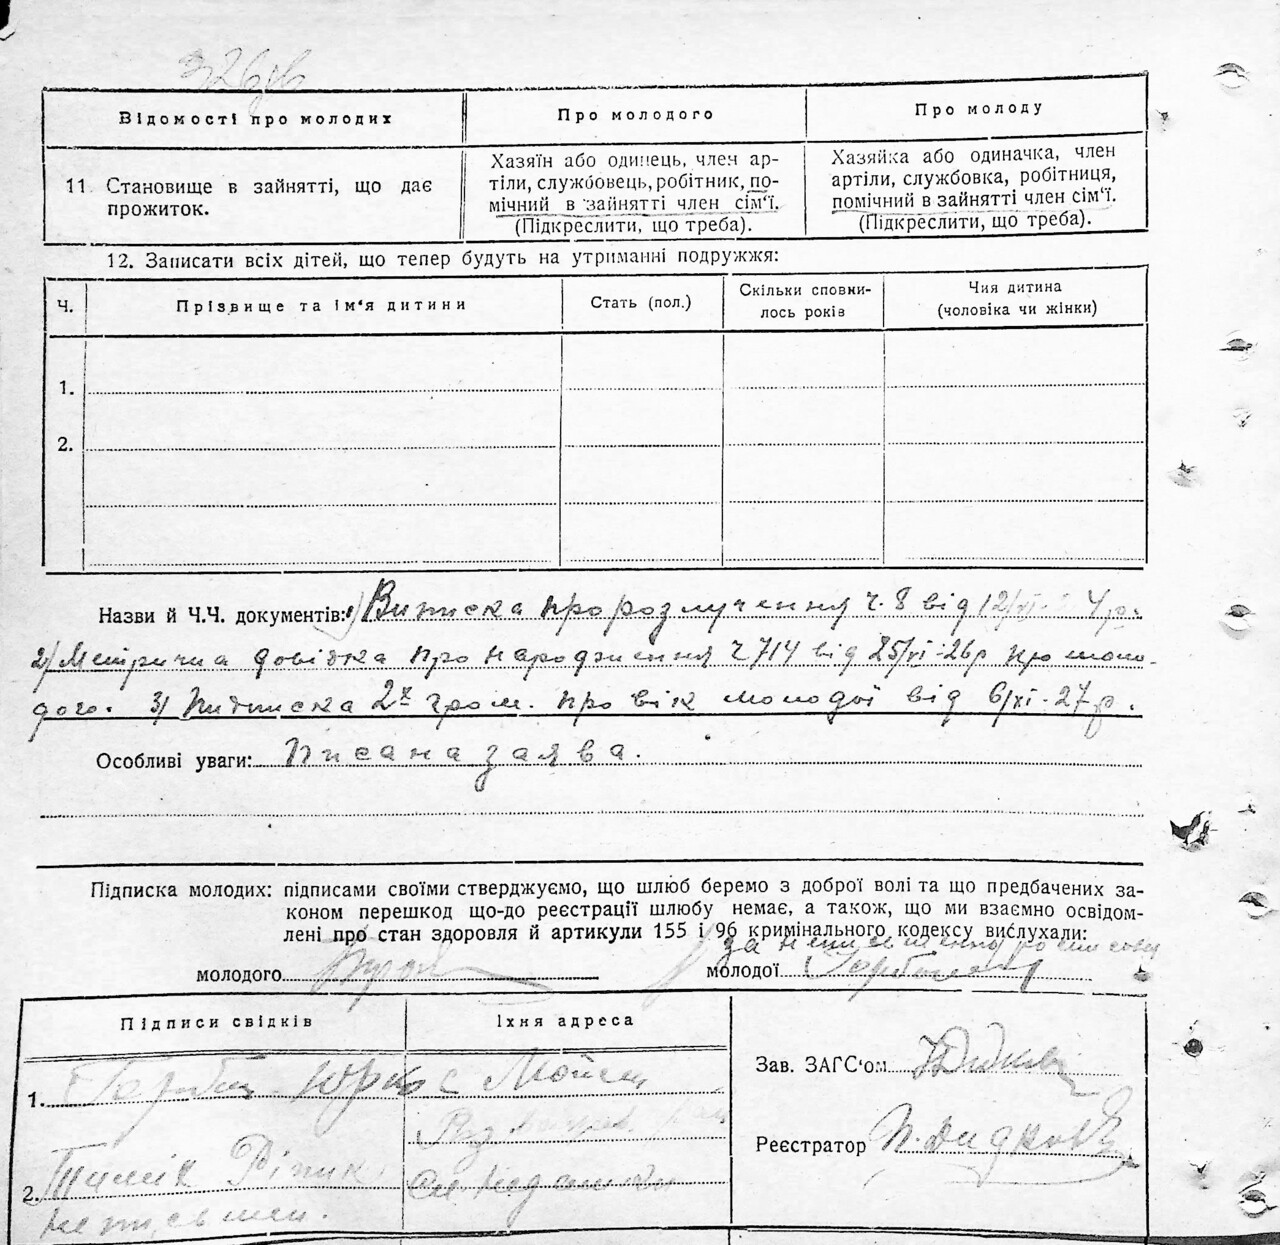 326 зв
Відомості про молодих
Про молодого
Про молоду
11. Становище в зайнятті, що дає
прожиток.
Хазяїн або одинець, член ар-
тіли, службовець, робітник, по-
мічний в зайнятті член сім'ї.
(Підкреслити, що треба).
Хазяйка або одиначка, член
артіли, службовка, робітниця,
помічний в зайнятті член сім'ї.
(Підкреслити, що треба).
12. Записати всіх дітей, що тепер будуть на утриманні подружжя:
Ч.
Прізвище та ім'я дитини
Стать (пол.)
Скільки сповни-
лось років
Чия дитина
(чоловіка чи жінки)
1.
2.
Назви й Ч.Ч. документів: 1) Виписка про розлучення ч. 8 від 12/VI-
2) Метрична довідка про народження ч 714 від 25/VI-26р про моло-
дого. 3) Підписка 2х гром. про вік молодої від 6/XI-27р.
Особливі уваги: Писана заява.
Підписка молодих: підписами своїми стверджуємо, що шлюб беремо з доброї волі та що предбачених за-
коном перешкод що-до реєстрації шлюбу немає, а також, що ми взаємно освідом-
лені про стан здоровля й артикули 155 і 96 кримінального кодексу вислухали:
за неписьменну
молодого
молодої
Підписи свідків
Їхня адреса
1. Юрко с Мойсеї
2.
неписьмен.
Зав. ЗАГС'ом
Реєстратор П. Дидковс